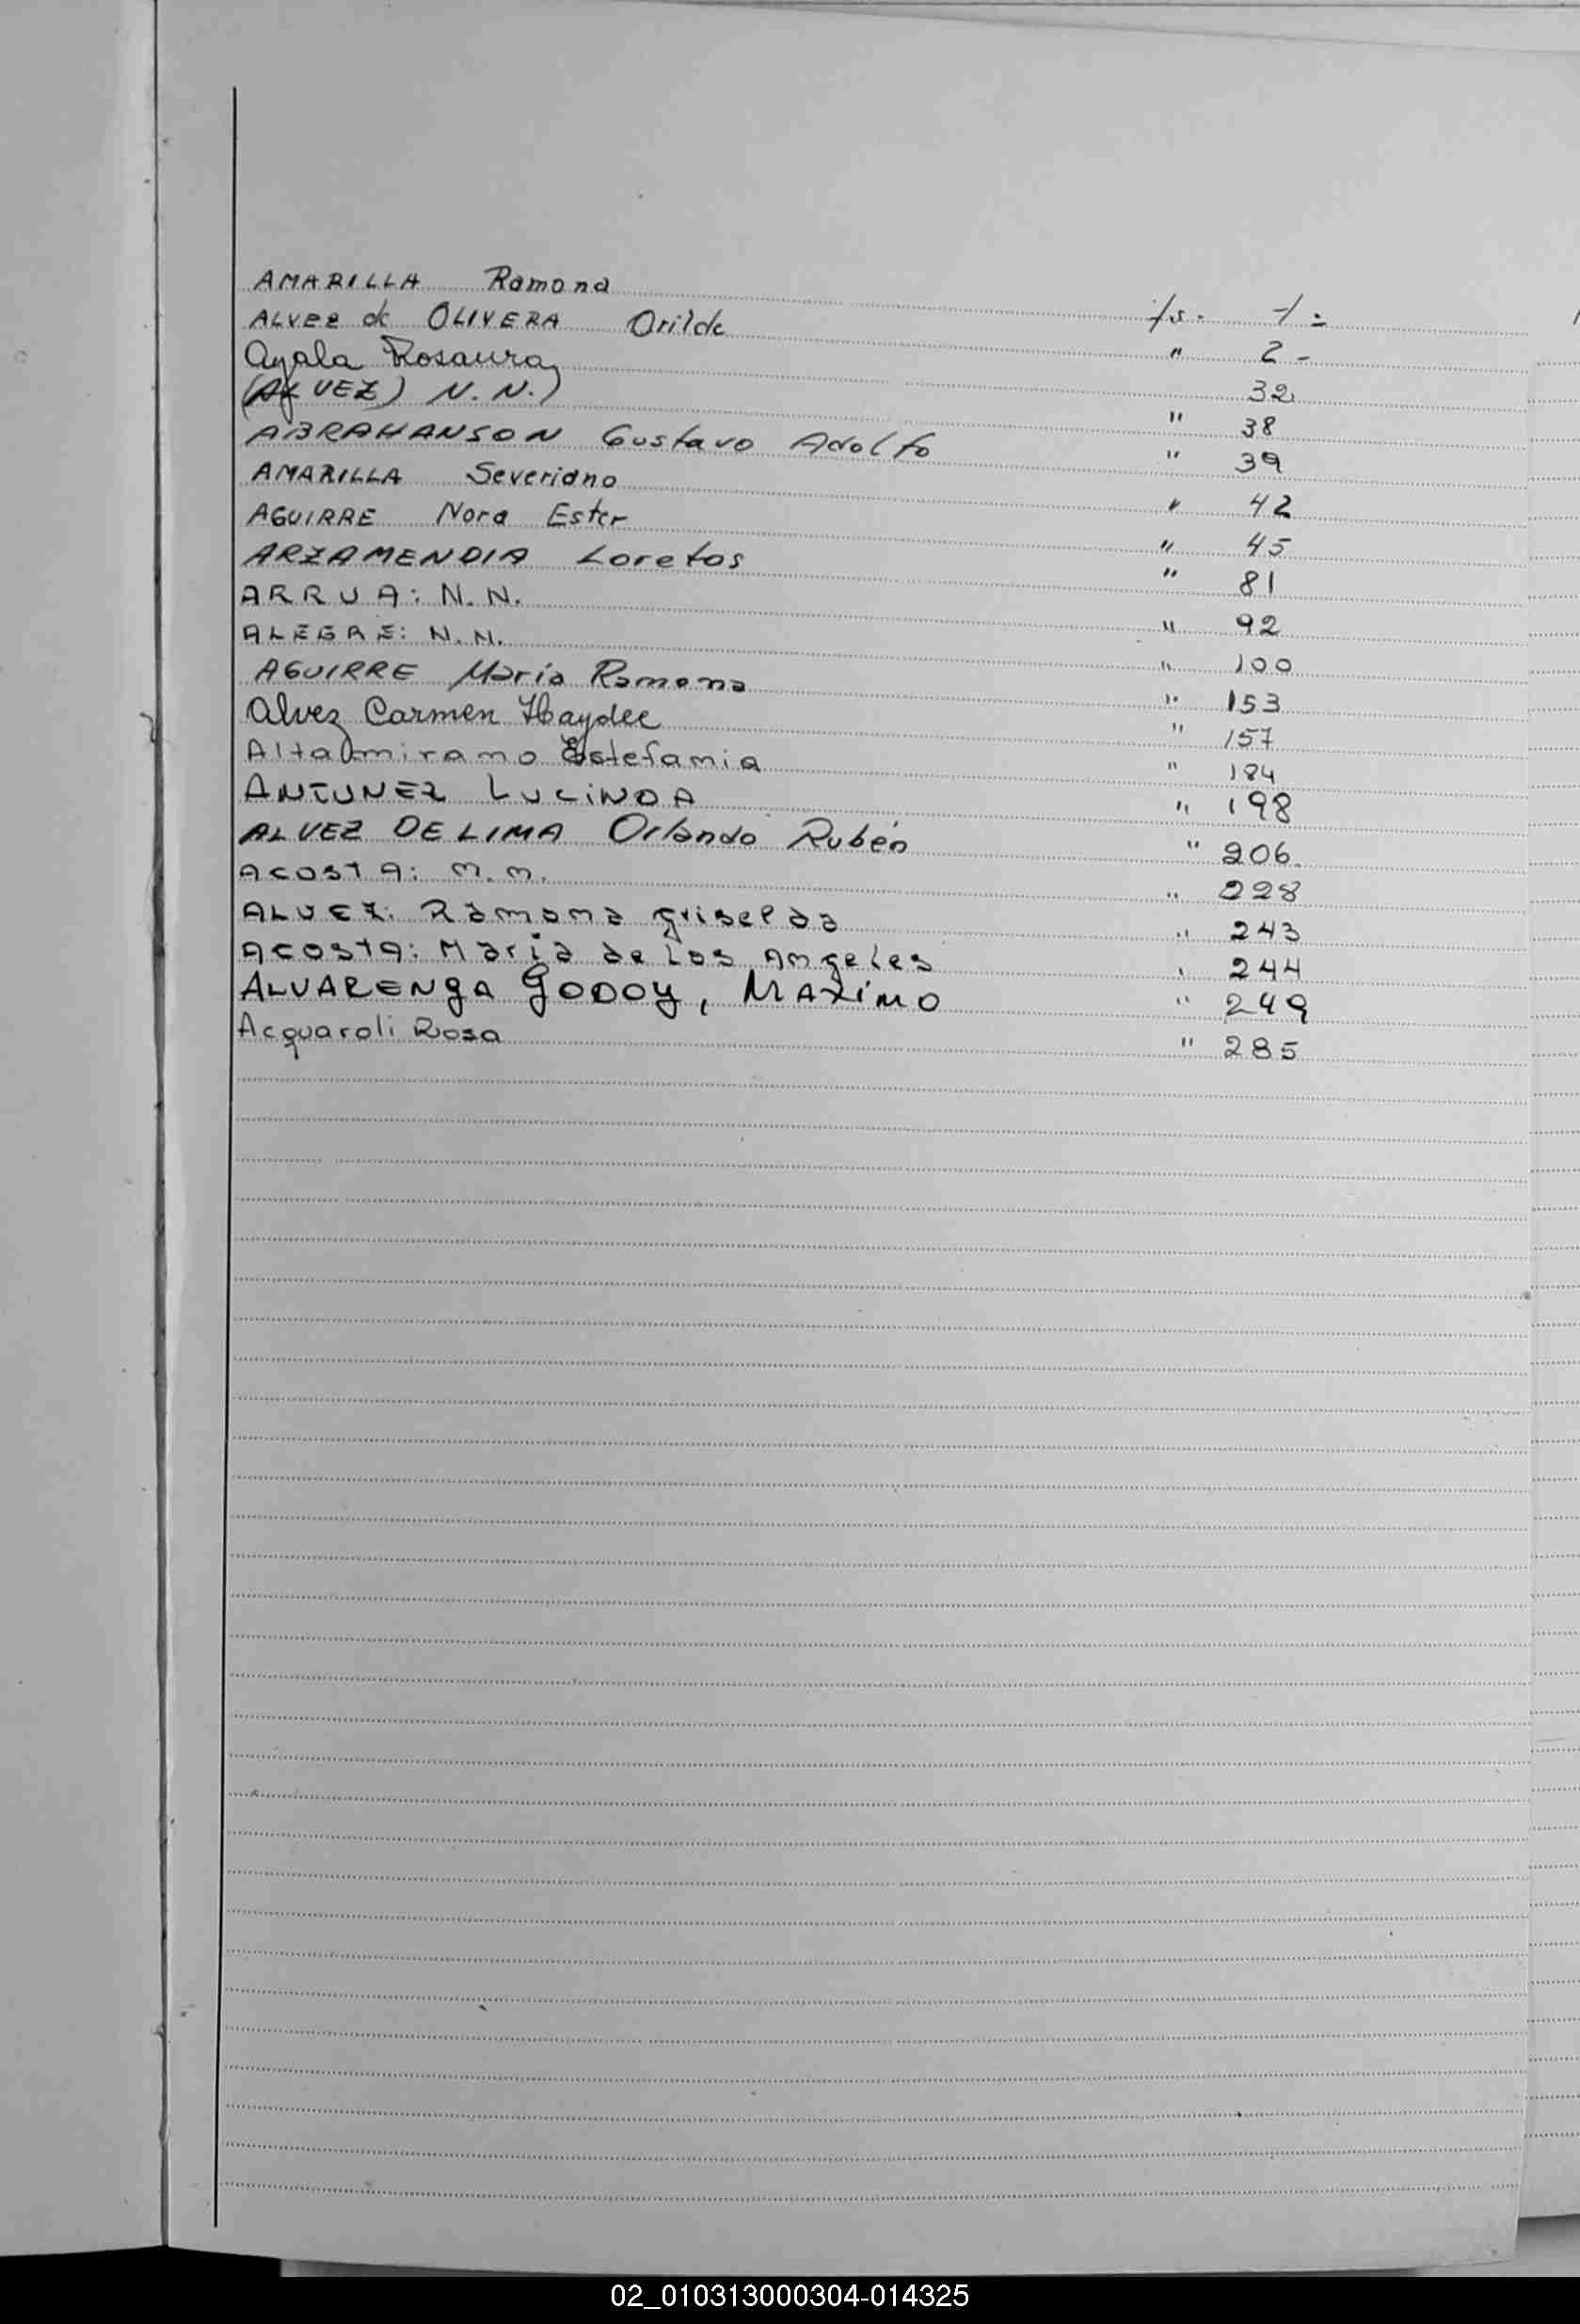 AMARILLA Ramona fs. 1=
ALVEZ de OLIVERA Orilde " 2-
Ayala Rosaura 32
(ALVEZ) N.N.) " 38
ABRAHANSON Gustavo Adolfo " 39
AMARILLA Severiano " 42
AGUIRRE Nora Ester " 45
ARZAMENDIA Loretos " 81
ARRUA: N.N. " 92
ALEGRE: N.N. " 100
AGUIRRE Maria Ramona " 153
Alvez Carmen Haydee " 157
Altamirano Estefania " 184
ANTUNEZ LUCINDA " 198
ALVEZ DE LIMA Orlando Rubén " 206
ACOSTA: N.N. " 228
ALVEZ: Ramona Griselda " 243
ACOSTA: Maria de Los Angeles " 244
ALVARENGA GODOY, MAXIMO " 249
Acquaroli Rosa " 285
02_010313000304-014325